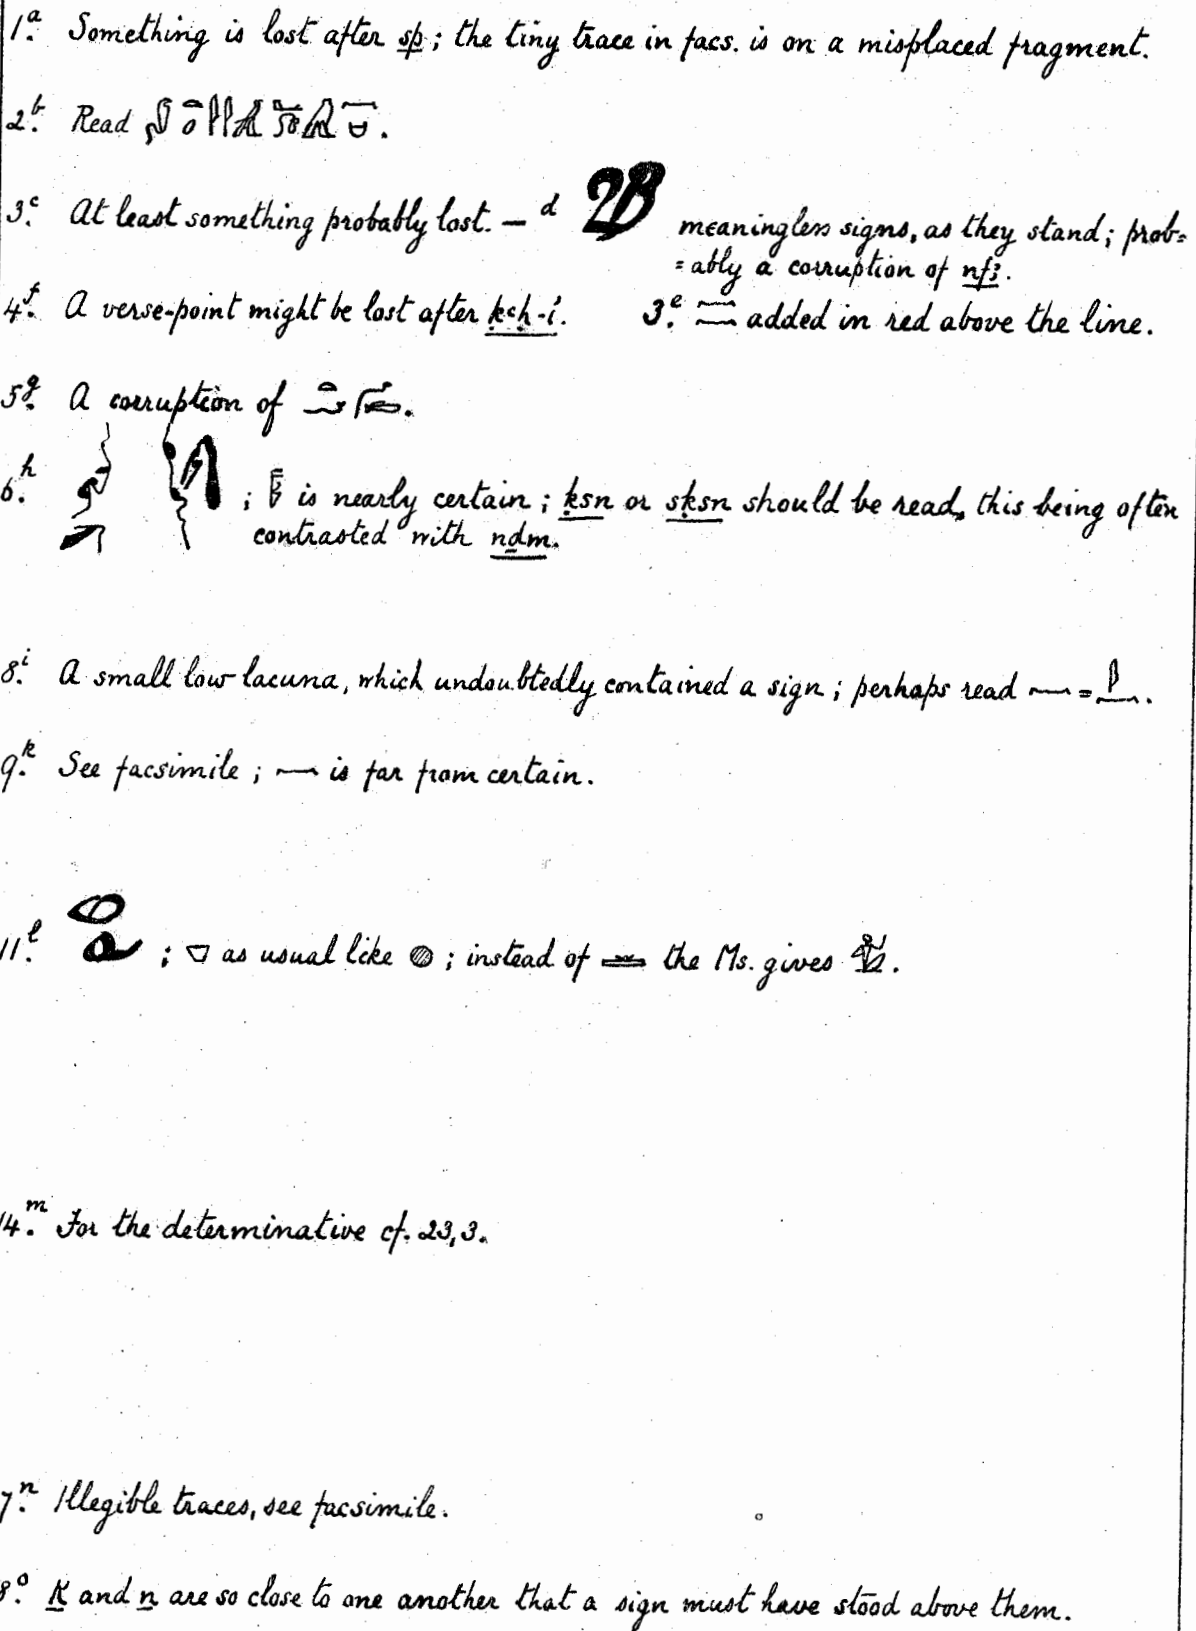 1.ᵃ Something is lost after sp; the tiny trace in facs. is on a misplaced fragment.
2.ᵇ Read .
3.ᶜ At least something probably lost. — ᵈ meaningless signs, as they stand; prob=
=ably a corruption of nfꜣ.
4.ᶠ A verse-point might be lost after ḳꜥḥ-i͗. 3.ᵉ added in red above the line.
5.ᵍ A corruption of .
6.ʰ ; is nearly certain; ḳsn or sḳsn should be read, this being often
contrasted with nḏm.
8.ⁱ A small low lacuna, which undoubtedly contained a sign; perhaps read = .
9.ᵏ See facsimile; is far from certain.
11.ˡ ; as usual like ; instead of the Ms. gives .
14.ᵐ For the determinative cf. 23,3.
7.ⁿ Illegible traces, see facsimile.
8.ᵒ K and n are so close to one another that a sign must have stood above them.